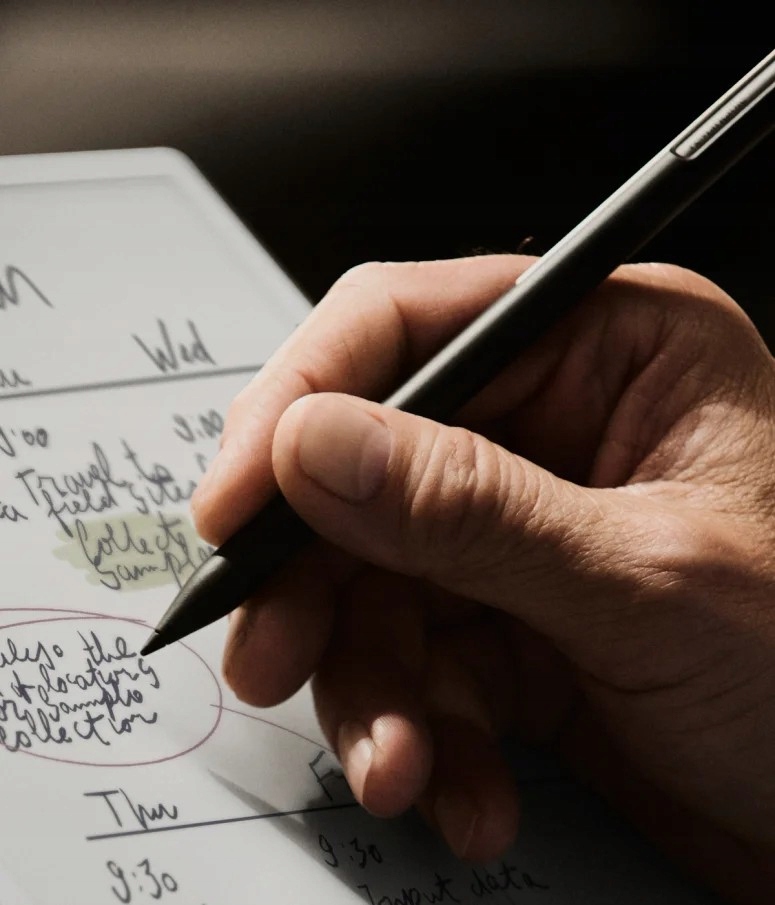 Wed
9:00
Travel to
field sites
Collect
Samples
the
for sample
collection
Thu
F
9:30
9:30
Input data